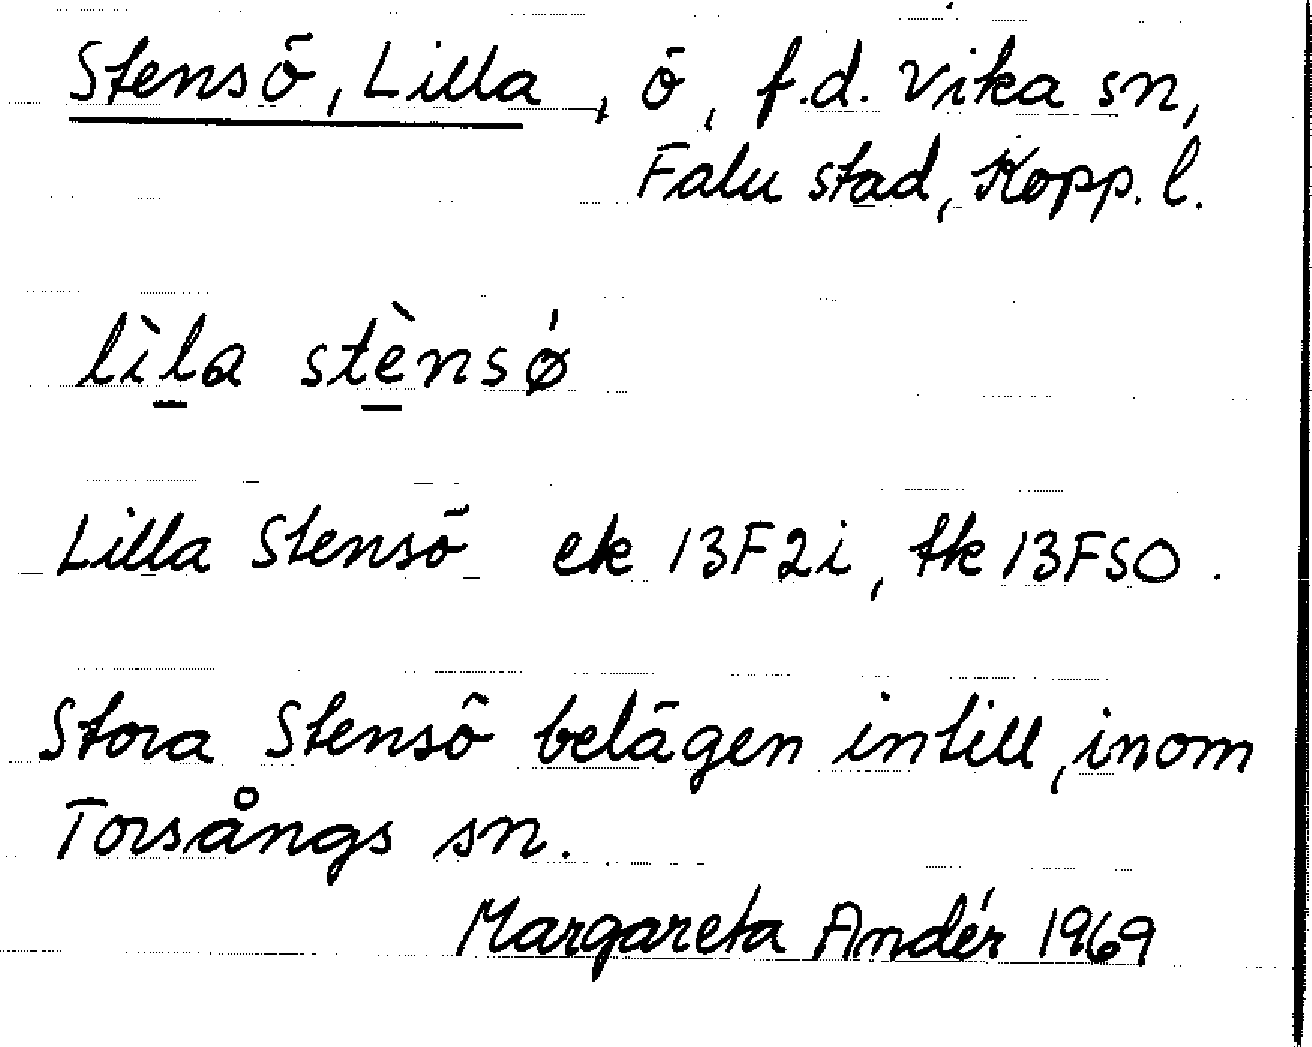 Stensö, Lilla, ö, f.d. Vika sn,
Falu stad, Kopp. l.
lìl̲a stè̲nsǿ
Lilla Stensö ek 13F2i, fk 13FSO.
Stora Stensö belägen intill, inom
Torsångs sn.
Margareta Andér 1969